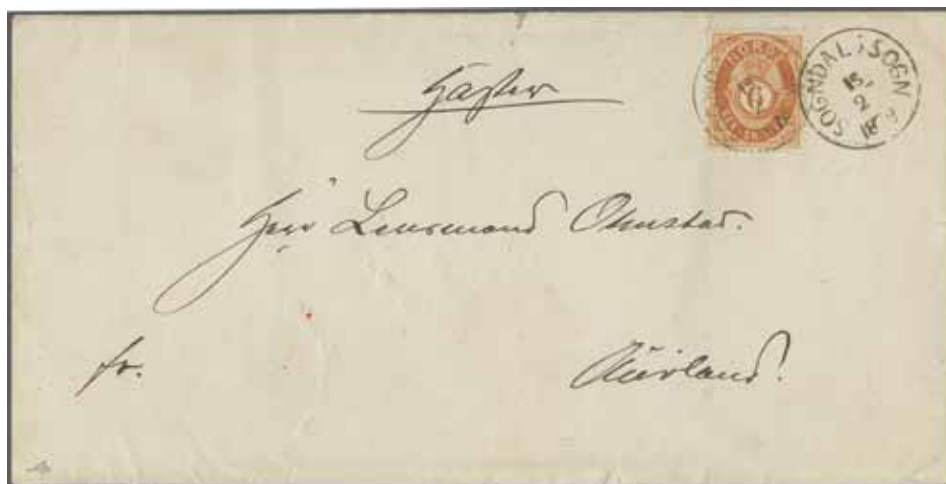 Haster
NORGE
6
SOGNDAL i SOGN
15
2
18
Herr Lensmand Ohnstad.
fr.
Aurland.